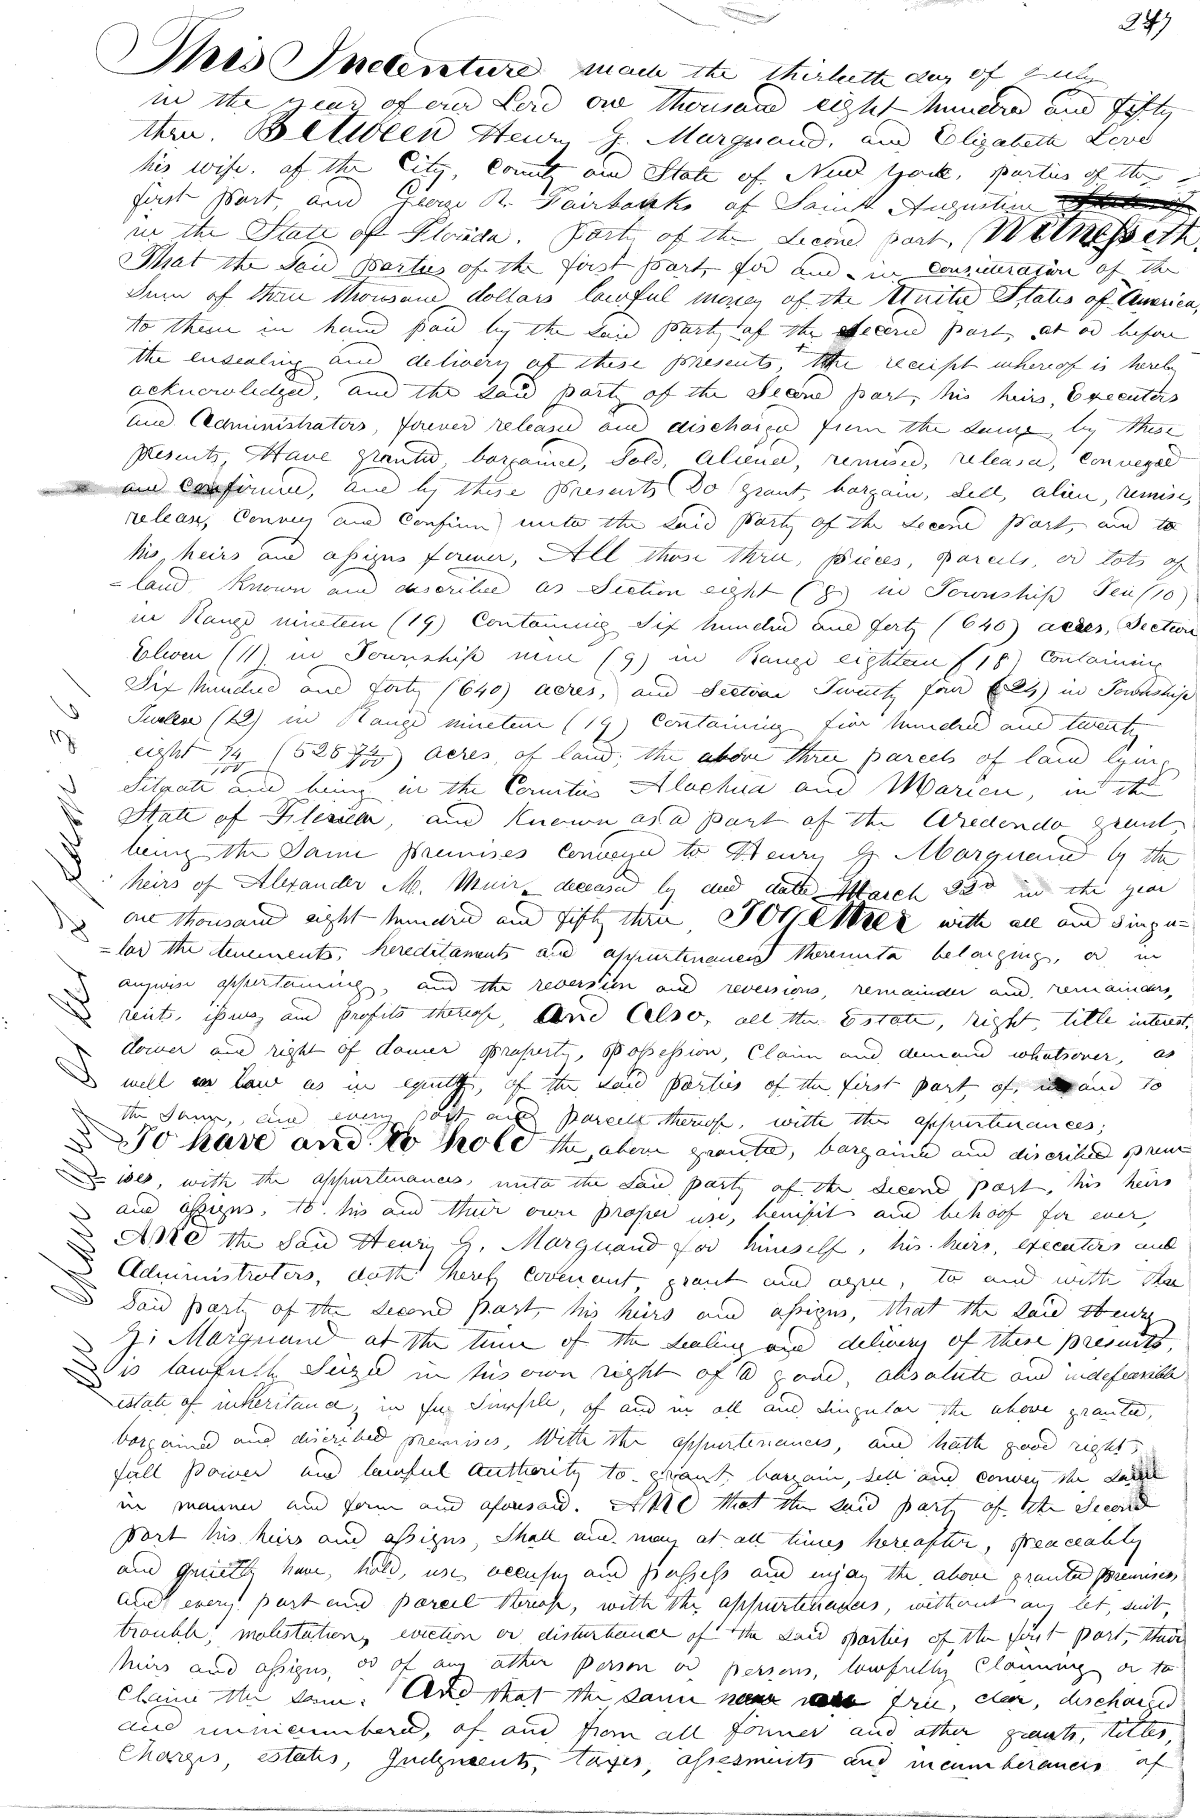 247
This Indenture made the thirtieth day of July
in the year of our Lord one thousand eight hundred and fifty
three. Between Henry G. Marquand, and Elizabeth Love
his wife. of the City, County and State of New York, parties of the
first part, and George R. Fairbanks of Saint Augustine
in the State of Florida. Party of the second part, Witnesseth,
That the said parties of the first part, for and in consideration of the
Sum of three thousand dollars lawful money of the United States of America,
to them in hand paid by the said party of the second part, at or before
the ensealing and delivery of these presents, the receipt whereof is hereby
acknowledged, and the said party of the Second part, his heirs, Executors
and Administrators, forever released and discharged from the same, by these
presents, Have granted, bargained, Sold, aliened, remised, released, conveyed
and confirmed, and by these presents Do grant, bargain, sell, alien, remise,
release, convey and confirm unto the said party of the second part, and to
his, heirs and assigns forever, All those three, pieces, parcels, or lots of
=land, known and discribed as Section eight (8) in Township Ten (10)
in Range nineteen (19) Containing Six hundred and forty (640) acres, Section
Eleven (11) in Township nine (9) in Range eighteen (18) Containing
Six hundred and forty (640) acres, and Section Twenty four (24) in Township
Twelve (12) in Range nineteen (19) Containing five hundred and twenty
eight 74/100 (528 74/100) acres, of land; the above three parcels of land lying
Situate and being in the Counties Alachua and Marion, in the
State of Florida, and known as a part of the Aredondo grant,
being the Same premises conveyed to Henry G. Marquand by the
heirs of Alexander M. Muir deceased by deed date March 22d in the year
one thousand eight hundred and fifty three, Together with all and Singu=
=lar the tenements, hereditaments and appurtenances thereunto belonging, or in
anywise appertaining, and the reversion and reversions, remainder and remainders,
rents, issues, and profits thereof, And Also, all the Estate, right, title interest,
dower and right of dower property, possession, Claim and demand whatsover, as
well in law as in equity, of the said parties of the first part, of, in and to
the same, and every part and parcell thereof, with the appurtenances;
To have and to hold the above granted, bargained and discribed prem=
=ises, with the appurtenances, unto the said party of the second part, his heirs
and assigns, to his and their own proper use, benifit and behoof for ever,
And the said Henry G. Marquand for himself, his heirs, executors and
Administrators, doth hereby covenant, grant and agree, to and with the
Said party of the second part, his heirs and assigns, that the said Henry
G. Marquand at the time of the sealing and delivery of these presents,
is lawfully Seized in his own right of a good, absolute and indefeasible
estate of inheritance, in fee Simple, of and in all and singular the above granted,
bargained and discribed premises, With the appurtenances, and hath good right,
full power and lawful authority to grant, bargain, sell and convey the same
in manner and form and aforesaid. And that the said party of the Second
part his heirs and assigns, Shall and may at all times hereafter, peaceably
and quietly have, hold, use, occupy and possess and enjoy the above granted premises,
and every part and parcel thereof, with the appurtenances, without any let, suit,
trouble, molestation, eviction or disturbance of the said parties of the first part, their
heirs and assigns, or of any other person or persons, lawfully Claiming or to
Claim the same: And that the same now are free, clear, discharged
and unincumbered, of and from all former and other grants, titles,
Charges, estates, Judgments, taxes, assesments and incumberances of